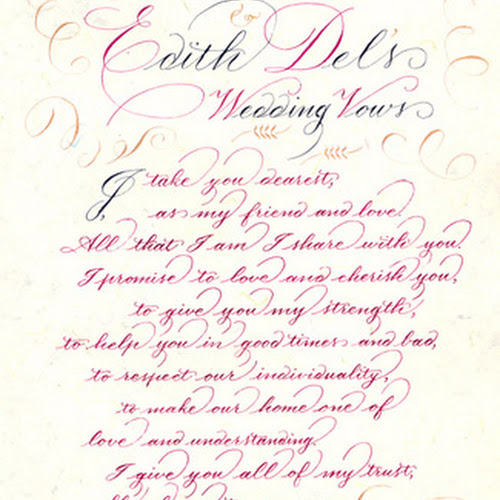 &
Edith Del's
Wedding Vows
I take you dearest,
as my friend and love.
All that I am I share with you.
I promise to love and cherish you,
to give you my strength,
to help you in good times and bad,
to respect our individuality,
to make our home one of
love and understanding.
I give you all of my trust,